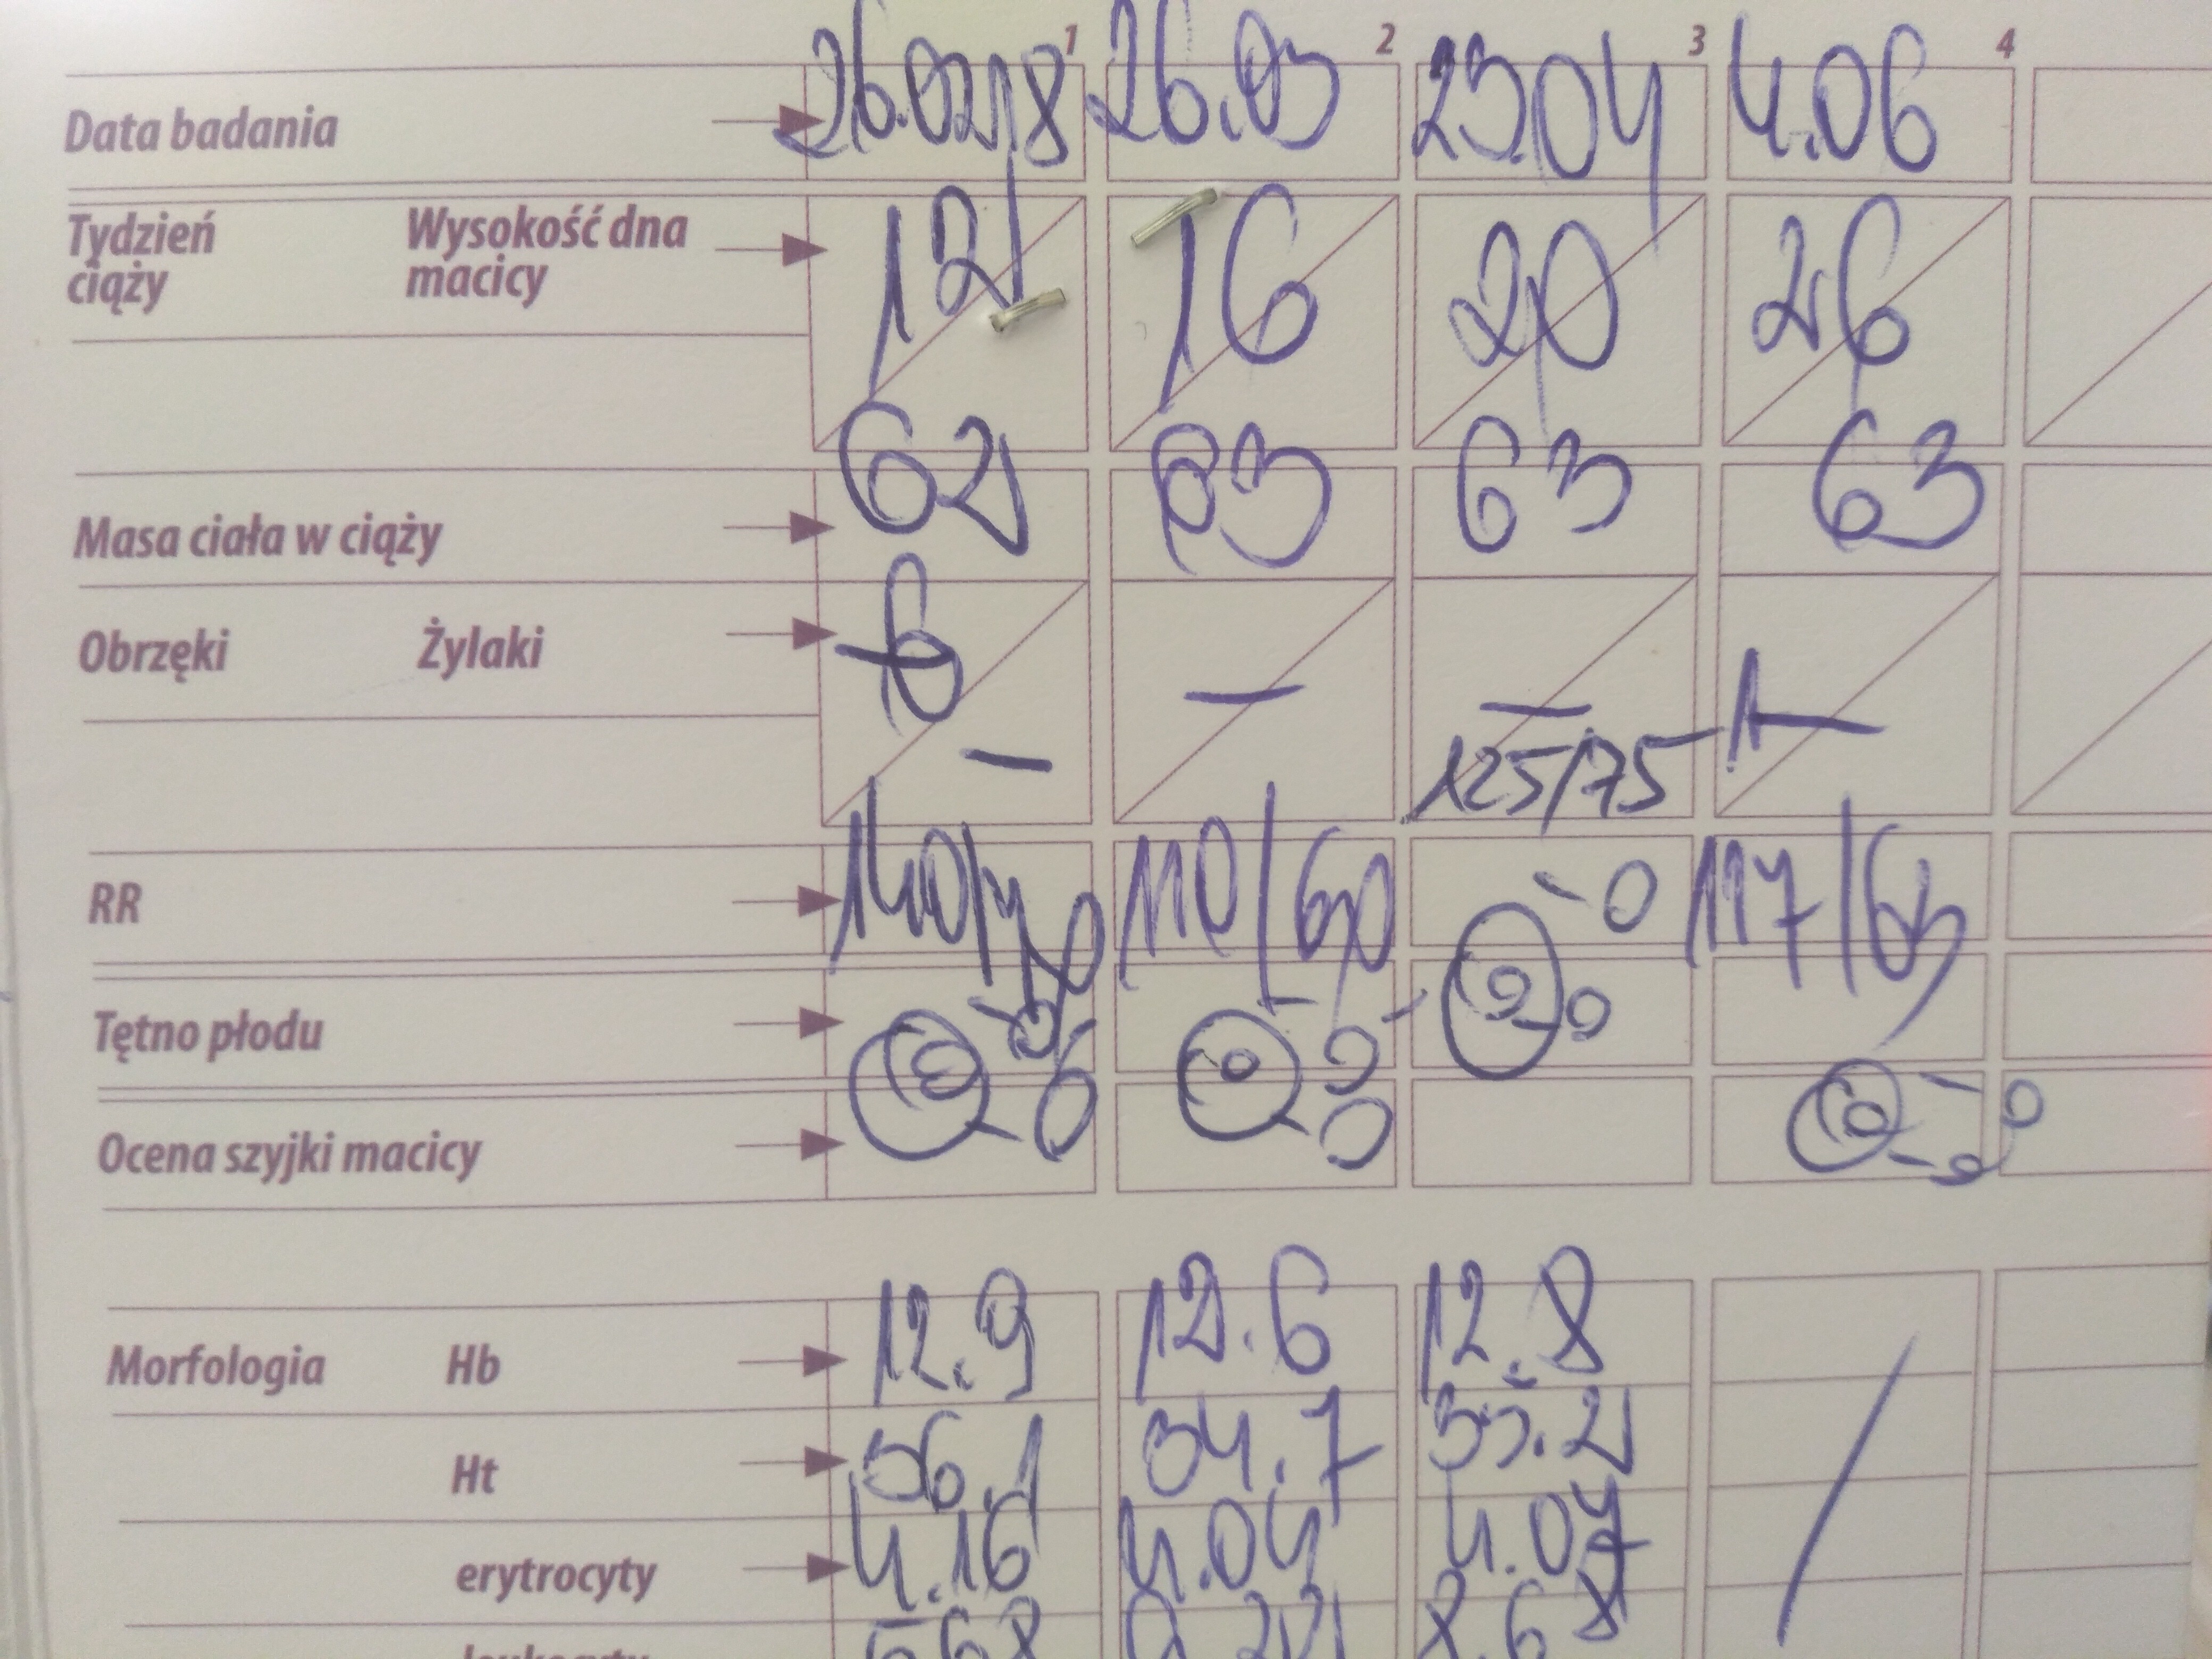 1 2 3 4
Data badania 26.02.18 26.03 23.04 4.06
Tydzień ciąży Wysokość dna macicy 12 16 20 26
Masa ciała w ciąży 62 63 63 63
Obrzęki Żylaki — — — —
125/75
RR 140/70 110/60 117/63
Tętno płodu
Ocena szyjki macicy
Morfologia Hb 12.9 12.6 12.8
Ht 36.1 34.7 35.2
erytrocyty 4.16 4.04 4.07
leukocyty